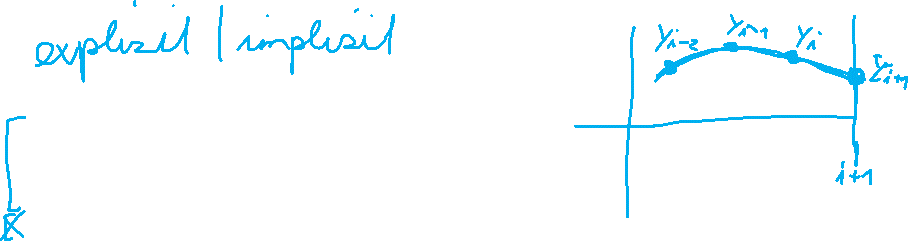 explizit | implizit
y_{i-2} y_{i-1} y_i
y_{i+1}
i+1